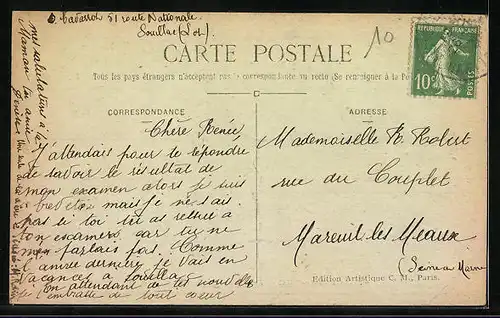 51 route Nationale
Souillac (Lot).
10
CARTE POSTALE
Tous les pays étrangers n'acceptent pas la correspondance au recto (Se renseigner à la Po
RÉPUBLIQUE FRANÇAISE
10c
POSTES
CORRESPONDANCE
ADRESSE
Chère Renée
J'attendais pour te répondre
de savoir le résultat de
mon examen alors je suis
brevetée mais je ne sais
pas si toi tu as réussi à
ton examen car tu ne
m'en parlais pas. Comme
l'année dernière je vais en
vacances à
En attendant de tes nouvelles
je t'embrasse de tout coeur
mes salutations à ta
Maman
Mademoiselle R. Robert
rue du Couplet
Mareuil les Meaux
(Seine et Marne
Edition Artistique C. M., Paris.